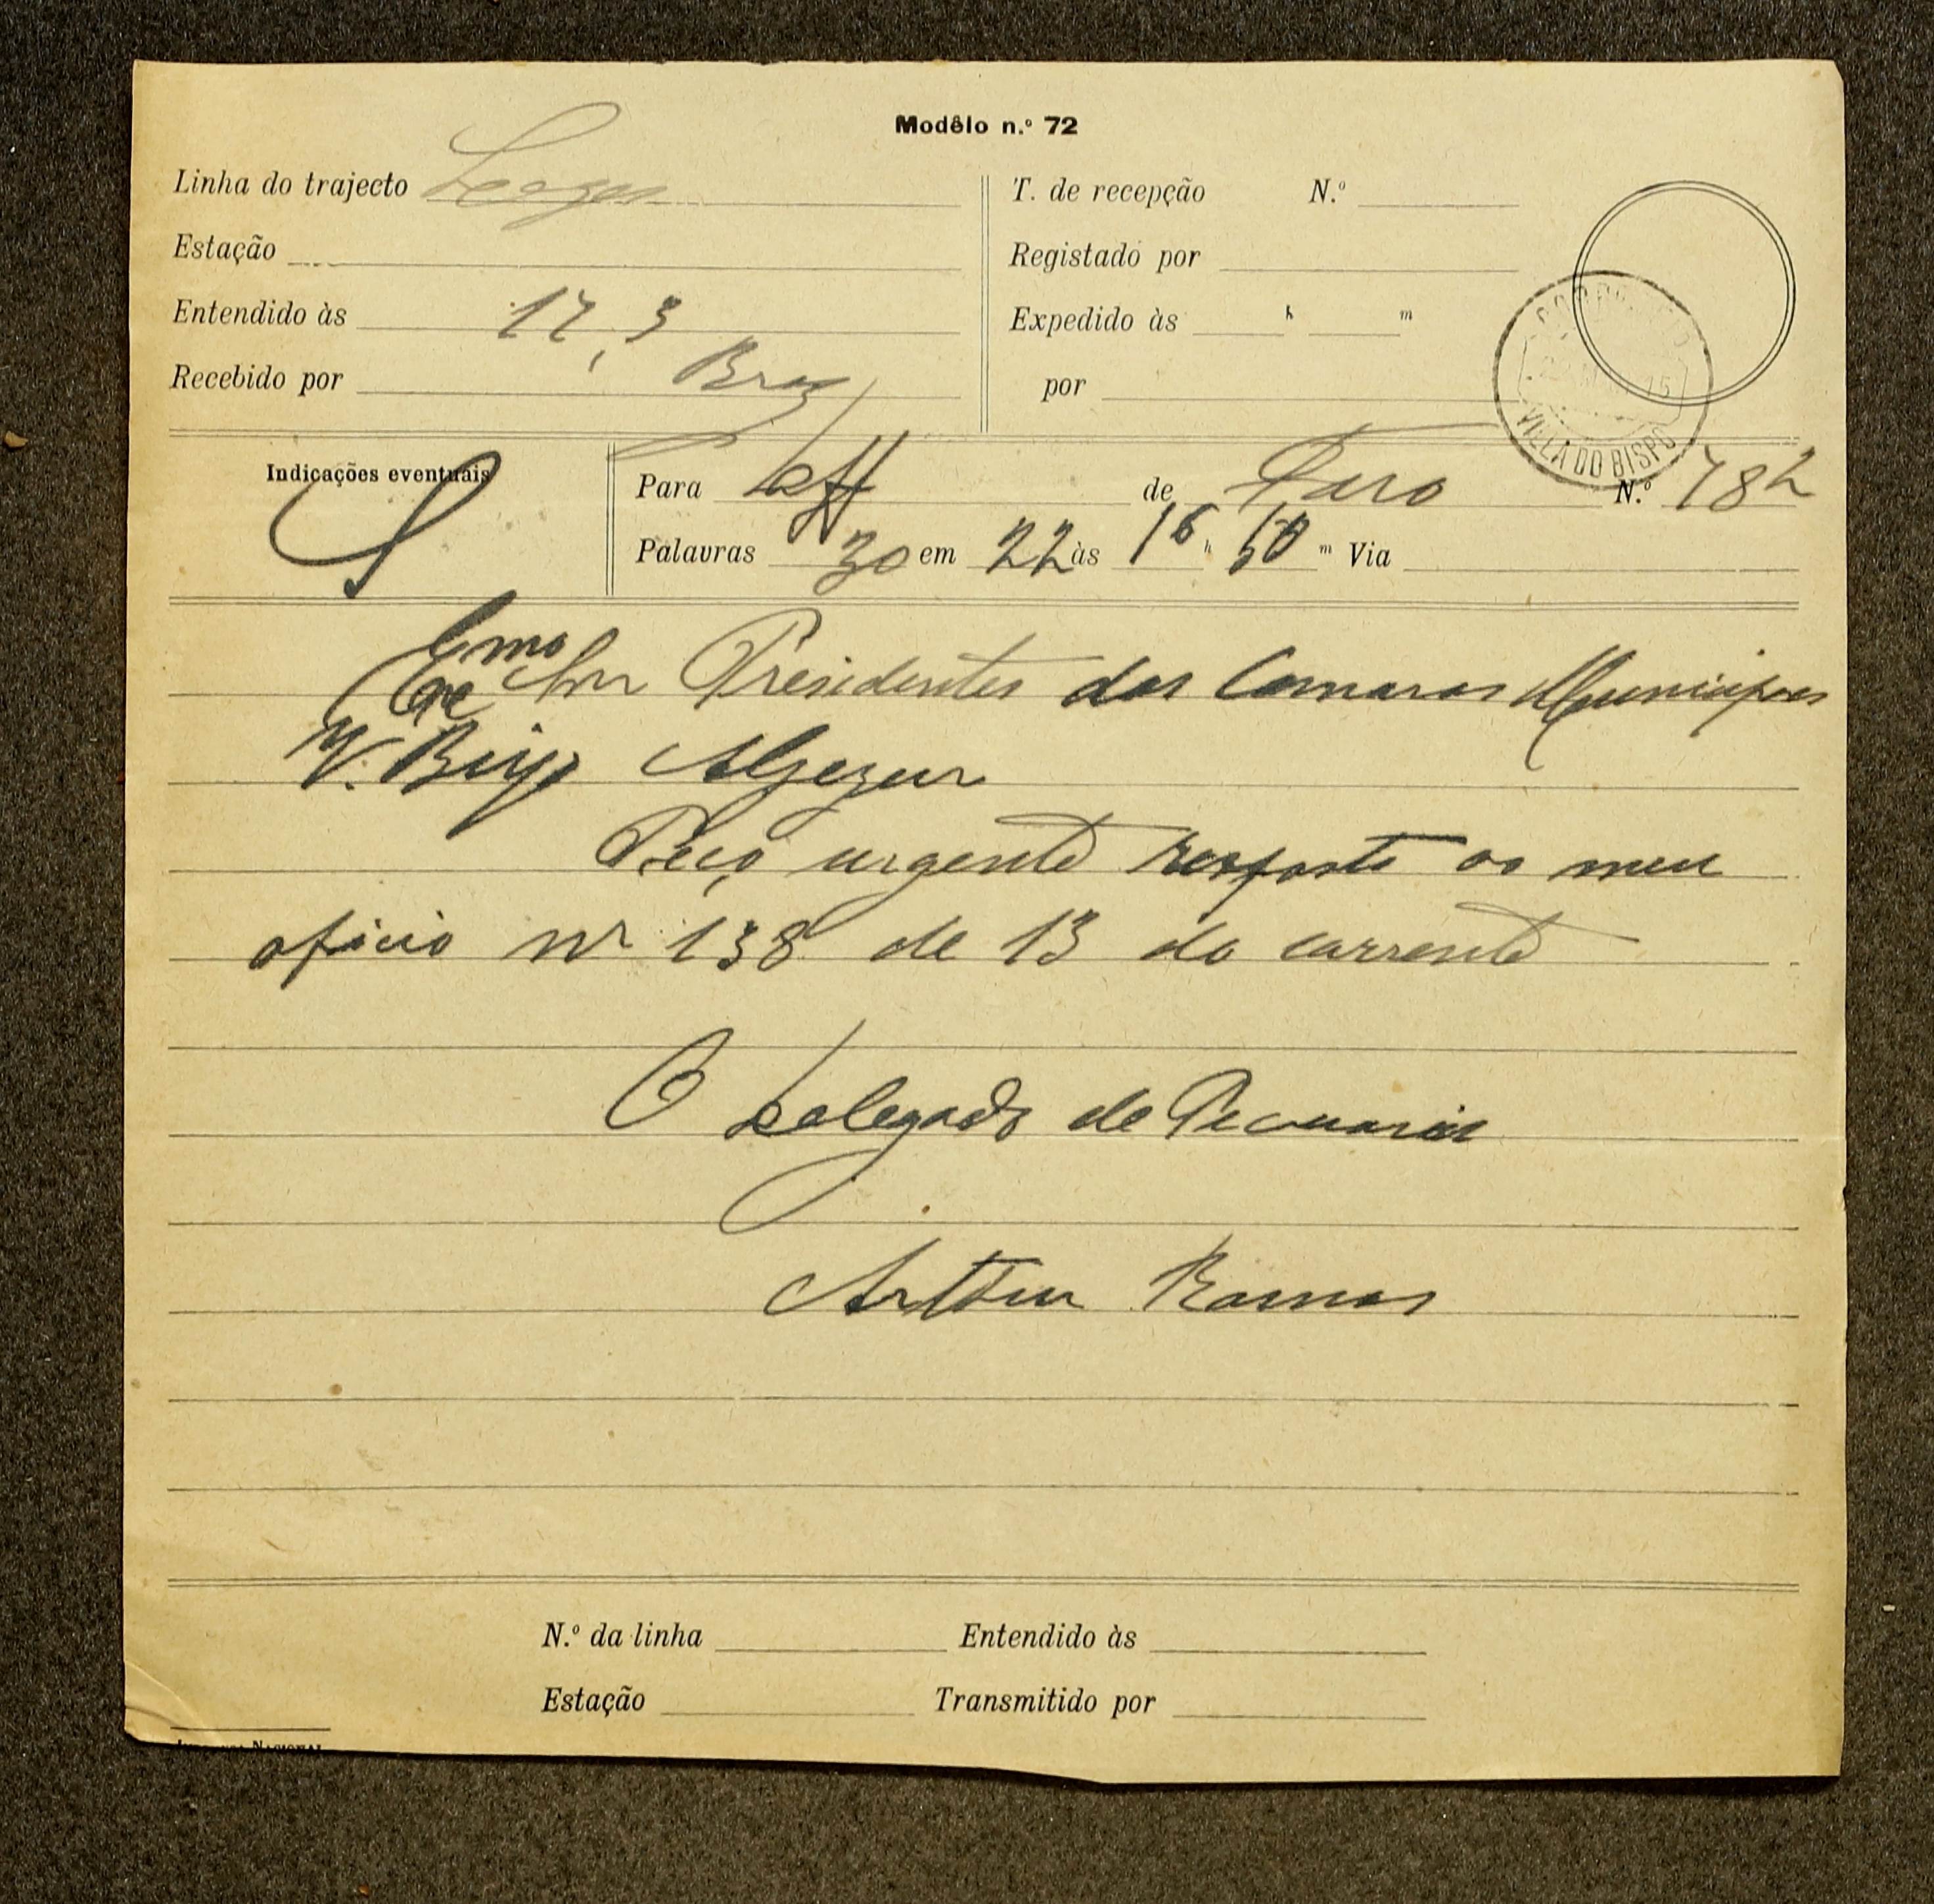 Modêlo n.º 72
Linha do trajecto Lagos
Estação
Entendido às 17,3
Recebido por Braz
T. de recepção N.º
Registado por
Expedido às h m
por
VILLA DO BISPO
Indicações eventuais
S
Para de Faro N.º 782
Palavras 30 em 22 às 16 h 50 m Via
Exmo Snr Presidentes das Camaras Municipaes
V. Bispo Aljezur
Peço urgente resposta ao meu
oficio nr 138 de 13 do corrente
O Delegado de Pecuaria
Arthur Ramos
N.º da linha Entendido às
Estação Transmitido por
NACIONAL